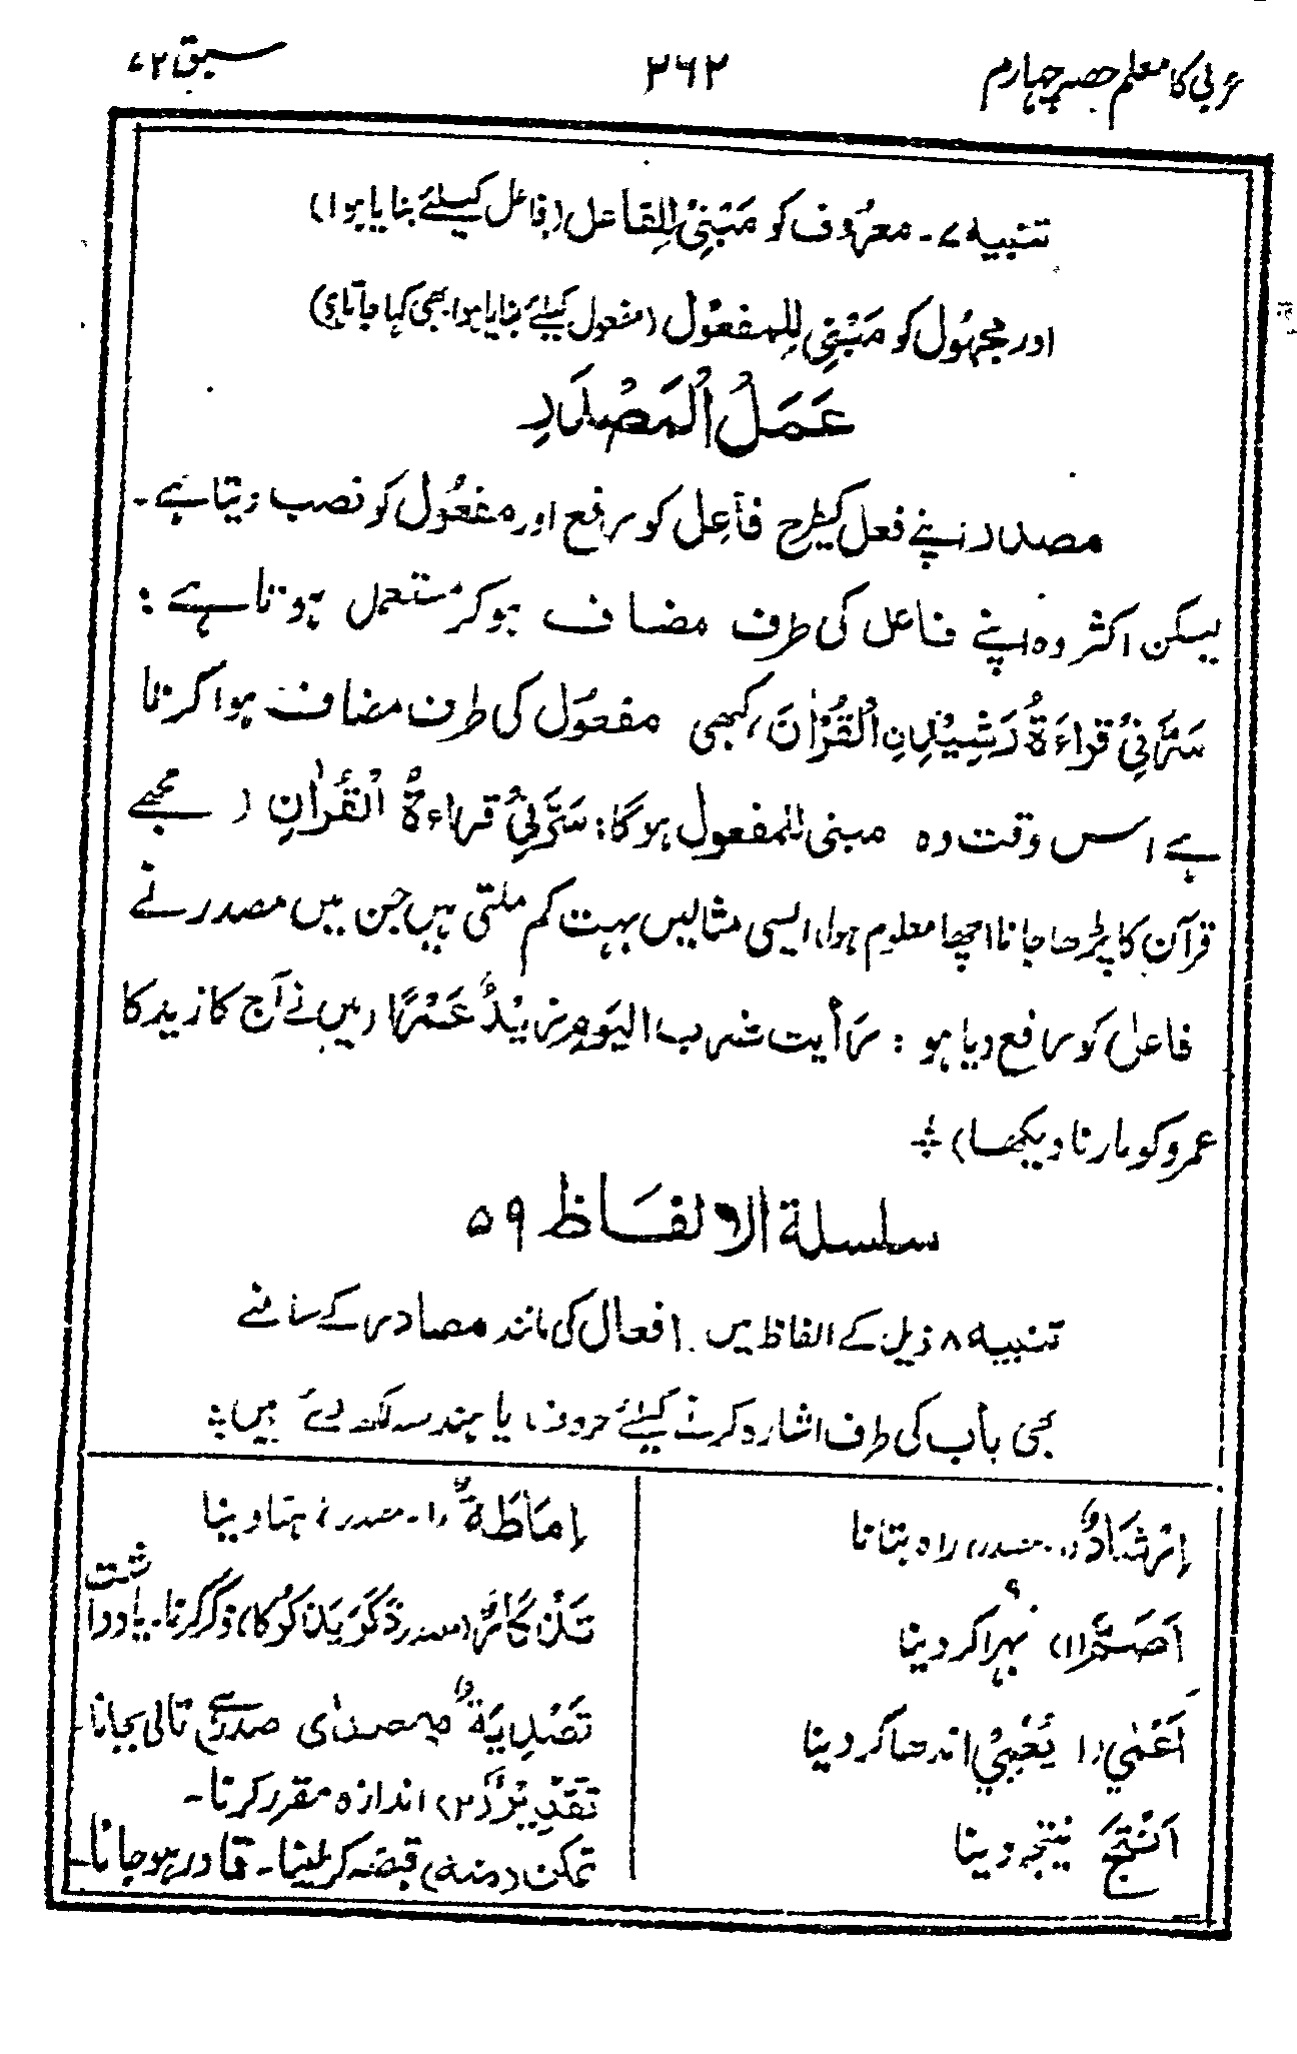 عربی کا معلم حصہ چہارم
۲۶۲
سبق ۷۲
تنبیہ ۷۔ معرُوف کو مَبْنِیْ لِلفاعل (فاعل کیلئے بنایا ہوا)
اور مجہُول کو مَبْنِی لِلمفعُول (مفعول کیلئے بنایا ہوا بھی کہا جاتا ہی)
عَمَلُ الْمَصْدَرِ
مصدر اپنے فعل کیطرح فاَعِل کو رفع اور مفعُول کو نصب دیتا ہے۔
لیکن اکثر وہ اپنے فاعل کی طرف مضاف ہو کر مستعمل ہوتا ہے :
سَرَّنِیْ قراءَۃُ رَشِیْدٍنِ الْقُرْاٰنَ، کبھی مفعُول کی طرف مضاف ہوا کرتا
ہے اس وقت وہ مبنی للمفعول ہوگا: سَرَّنِیْ قراءۃُ الْقُراٰنِ ( مجھے
قرآن کا پڑھا جانا اچھا معلوم ہوا، ایسی مثالیں بہت کم ملتی ہیں جن میں مصدر نے
فاعل کو رفع دیا ہو : رأیت ضرب الیَومِ زیْدٌ عَمْرًا (میں نے آج کا زید کا
عمرو کو مارنا دیکھا)
سلسلة الالفاظ ۵۹
تنبیہ ۸ ذیل کے الفاظ میں افعال کی مانند مصادر کے سامنے
بھی باب کی طرف اشارہ کرنے کیلئے حروف یا ہندسہ لکھ دئے ہیں
اِرْشَادٌ (۱۔ مصدر) راہ بتانا
اَصَمَّ (۱) بہرا کر دینا
اَعْمٰی (۱ یُعْمِیْ) اندھا کر دینا
اَنْتَجَ نتیجہ دینا
اِمَاطَةٌ (۱۔ مصدر) ہٹا دینا
تَذْکَارٌ (مصدر ذَکَرَ یَذْکُرُ کا) ذکر کرنا۔ یادداشت
تَصْدِیَةٌ مصدر صدّی سے تالی بجانا
تَقْدِیْرٌ (۲) اندازہ مقرر کرنا۔
تمکن (منہ) قبضہ کر لینا۔ قادر ہو جانا۔